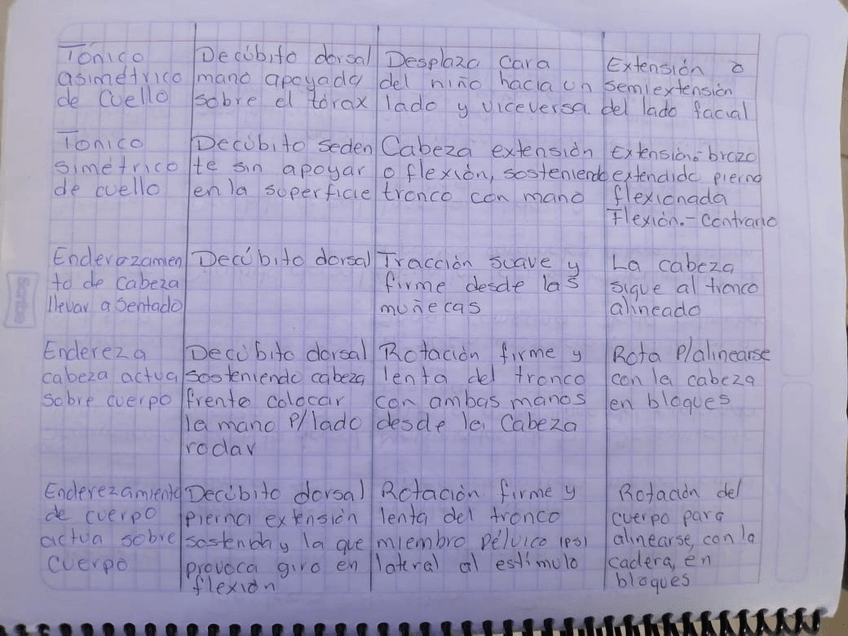 Tónico
asimétrico
de Cuello
Decúbito dorsal
mano apoyada
sobre el tórax
Desplaza cara
del niño hacia un
lado y viceversa
Extensión o
semiextensión
del lado facial
Tónico
simétrico
de cuello
Decúbito seden
te sin apoyar
en la superficie
Cabeza extensión
o flexión, sosteniendo
tronco con mano
Extensión.-brazo
extendido pierna
flexionada
Flexión.-Contrario
Enderazamien
to de cabeza
llevar a sentado
Decúbito dorsal
Tracción suave y
firme desde las
muñecas
La cabeza
sigue al tronco
alineado
Endereza
cabeza actua
sobre cuerpo
Decúbito dorsal
sosteniendo cabeza
frente colocar
la mano P/lado
rodar
Rotación firme y
lenta del tronco
con ambas manos
desde la Cabeza
Rota P/alinearse
con la cabeza
en bloques
Enderezamiento
de cuerpo
actua sobre
cuerpo
Decúbito dorsal
pierna extensión
sostenida y la que
provoca giro en
flexión
Rotación firme y
lenta del tronco
miembro pélvico
lateral al estímulo
Rotación del
cuerpo para
alinearse, con la
cadera, en
bloques
Scribe